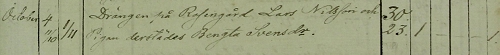 October 4 11/10 1/11 Drängen på Rosengård Lars Nilsson och 30
Pigan derstädes Bengta Svensdr. 23 1